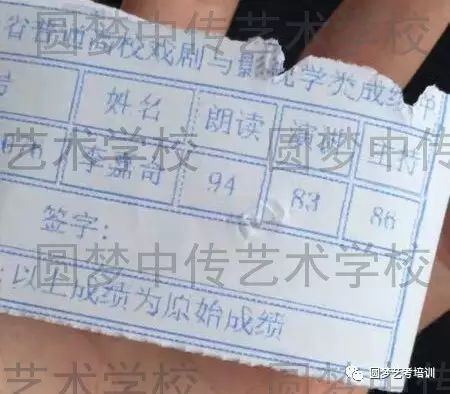 省普通高校戏剧与影视学类成绩
姓名 朗读 演 主持
李嘉奇 94 83 86
签字：
以上成绩为原始成绩
圆梦中传艺术学校
艺术学校 圆梦中传
圆梦中传艺术学校
艺术学校 圆梦中传
圆梦艺考培训